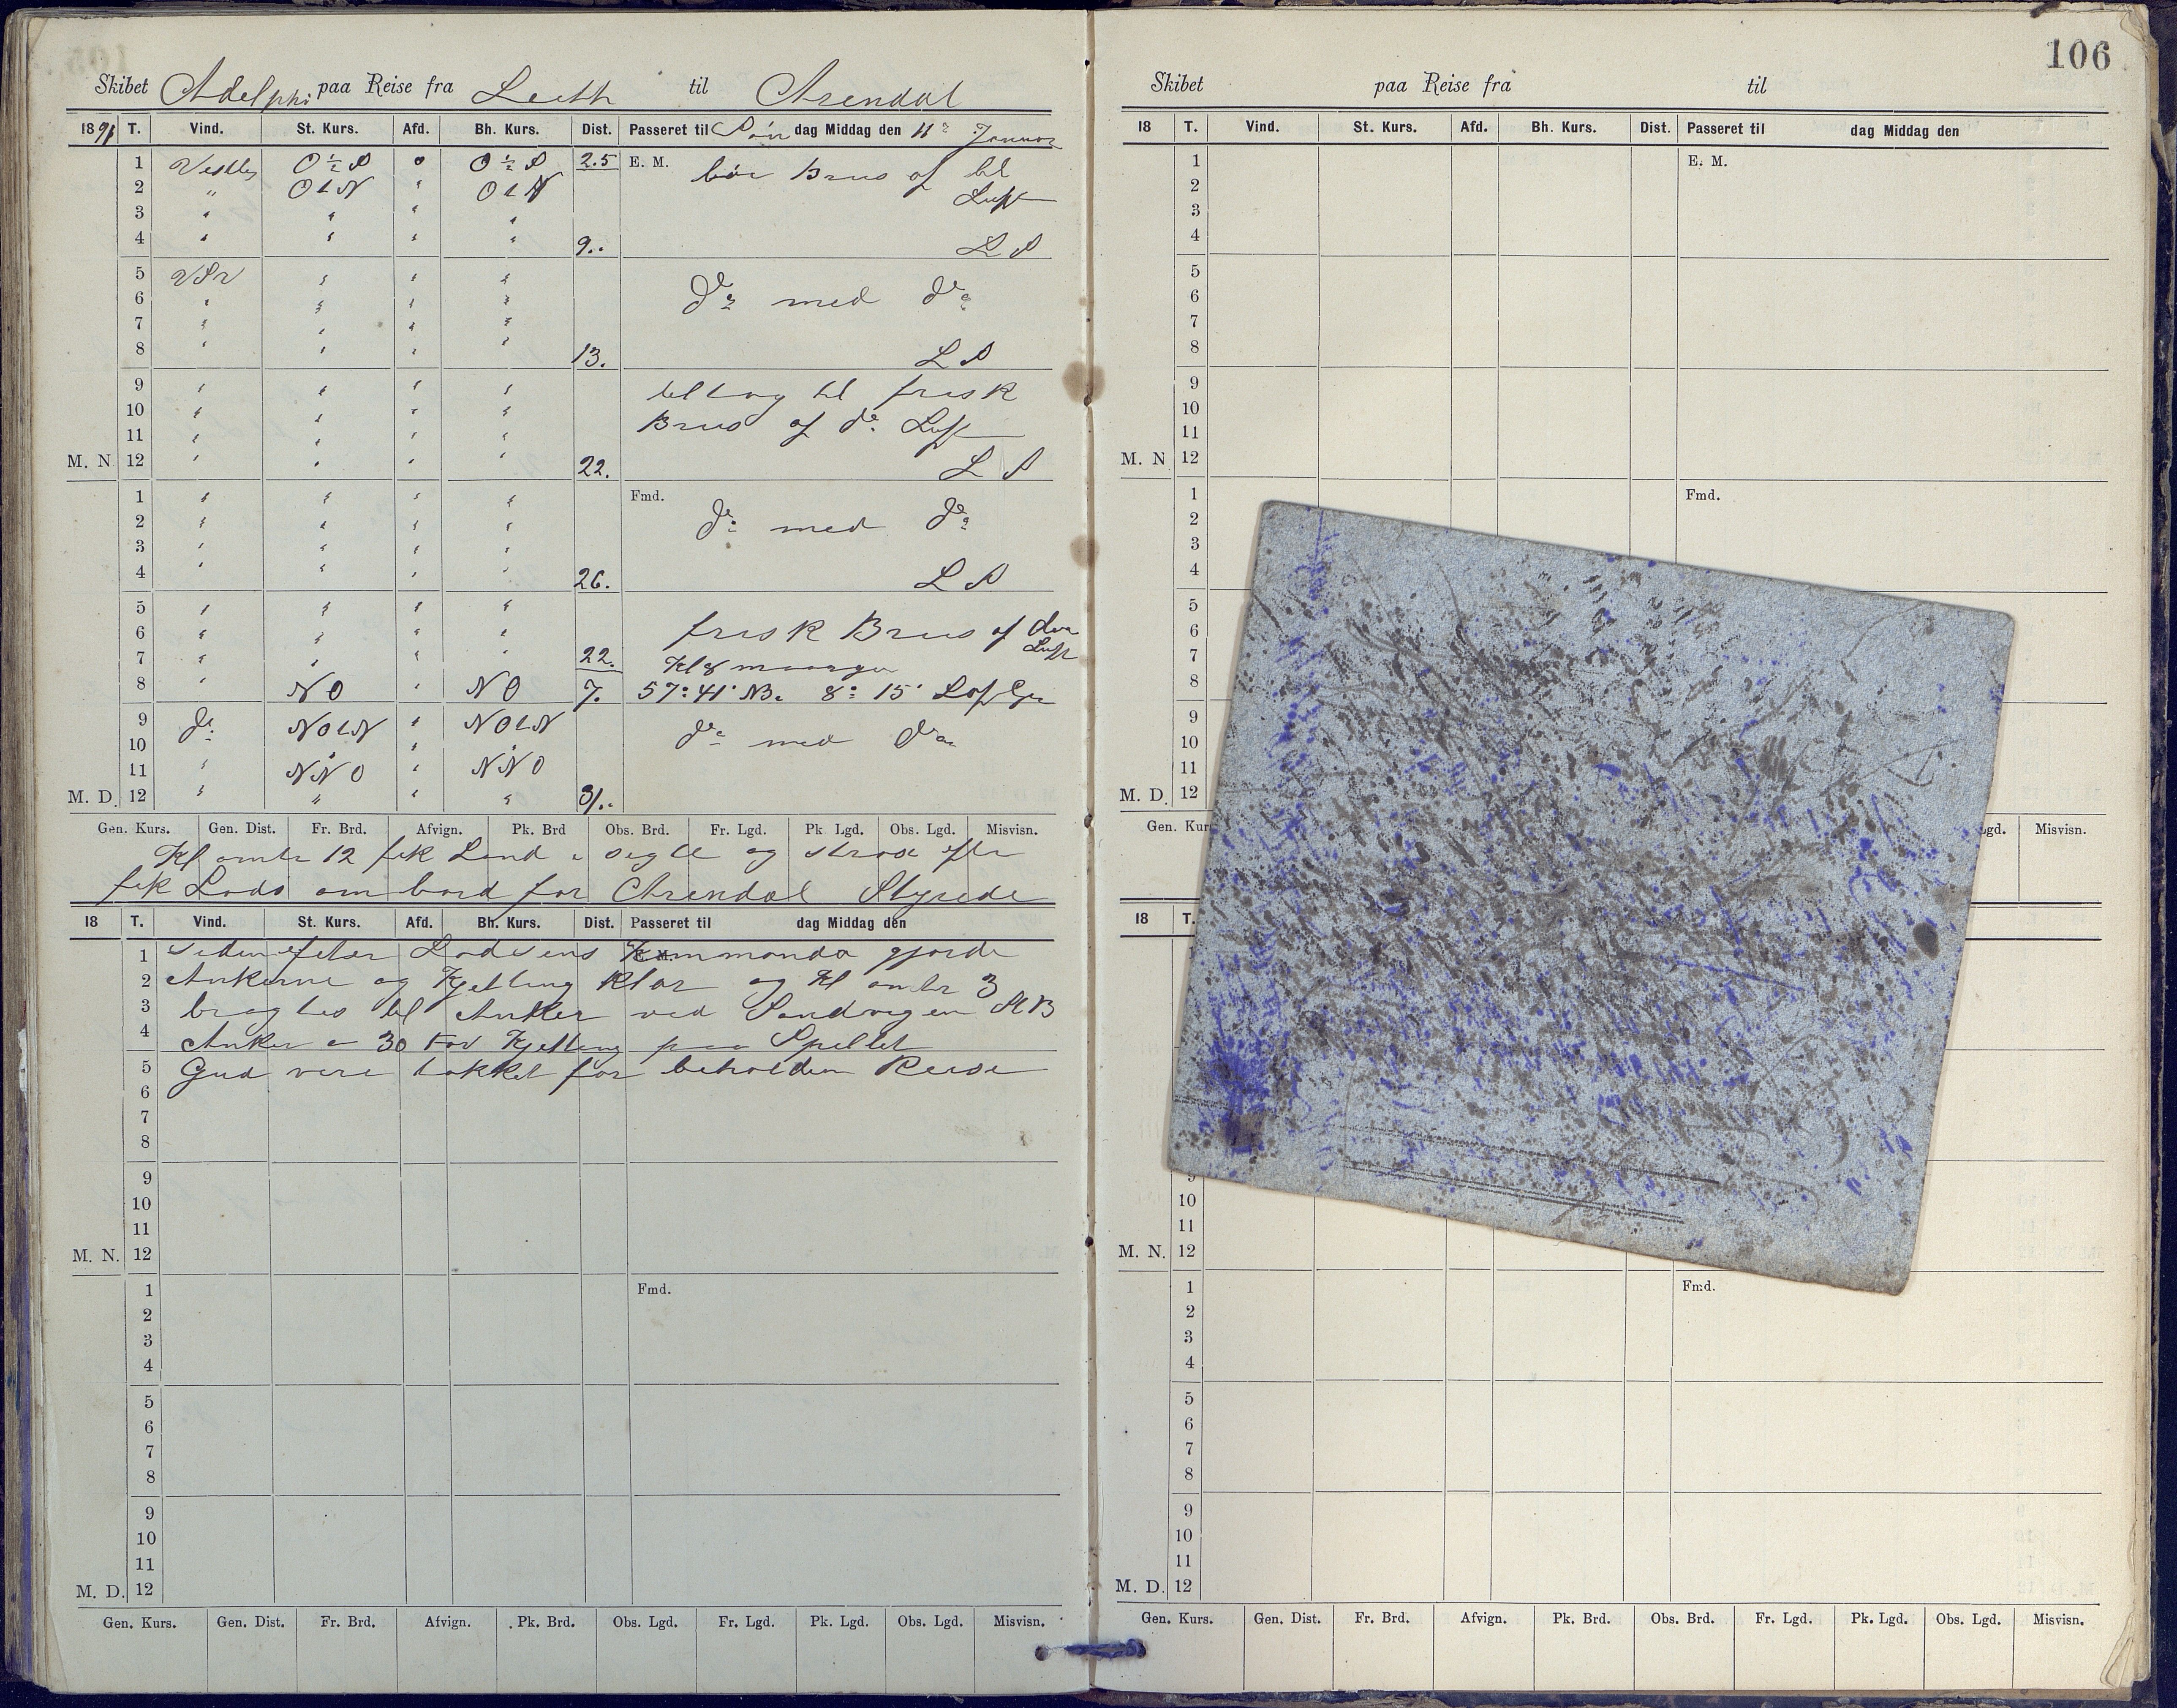 Skibet Adelphi paa Reise fra Leith til Arendal
18 T. Vind. St. Kurs. Afd. Bh. Kurs. Dist. Passeret til Søn dag Middag den 11 Januar
1 Vestlig O ½ S 0 O ½ S 2.5 E. M. bør Brus af
2 " O t N " O t N Luft
3 " " " "
4 " " " " 9. L S
5 " " "
6 " " " " do med do
7 " " " "
8 " " " " 13. L S
9 " " " " tiltog til frisk
10 " " " " Brus af do Luft
11 " " " "
M. N. 12 " " " " 22. L S
1 " " " " Fmd.
2 " " " " do med do
3 " " " "
4 " " " " 26. L S
5 " " " "
6 " " " " frisk Brus af
7 " " " " 22. Kl 8 morgen Luft
8 " NO " NO 7. 57° 41' NB. 8° 15'
9 do NOtN " NOtN
10 " do med do
11 " NNO " NNO
M. D. 12 " " " " 31.
Gen. Kurs. Gen. Dist. Fr. Brd. Afvign. Pk. Brd Obs. Brd. Fr. Lgd. Pk. Lgd. Obs. Lgd. Misvisn.
Kl omtr 12 fik Land i sigte og strax efter
fik Lods om bord for Arendal Styrede
18 T. Vind. St. Kurs. Afd. Bh. Kurs. Dist. Passeret til dag Middag den
1 siden efter Lodsens Kommando gjorde
2 Ankerne og Kjetting klar og Kl omtr 3
3 bragtes til Anker ved Sandvigen StB
4 Anker 30 Fav Kjetting paa Spellet
5 Gud være takket for beholden Reise
6
7
8
9
10
11
M. N. 12
1 Fmd.
2
3
4
5
6
7
8
9
10
11
M. D. 12
Gen. Kurs. Gen. Dist. Fr. Brd. Afvign. Pk. Brd. Obs. Lgd. Fr. Lgd. Pk. Lgd. Obs. Lgd. Misvisn.
106
Skibet paa Reise fra til
18 T. Vind. St. Kurs. Afd. Bh. Kurs. Dist. Passeret til dag Middag den
1 E. M.
2
3
4
5
6
7
8
9
10
11
M. N 12
1 Fmd.
2
3
4
5
6
7
8
9
10
11
M. D. 12
Gen. Misvisn.
18 T.
9
10
11
M. N. 12
1 Fmd.
2
3
4
5
6
7
8
9
10
11
M. D. 12
Gen. Kurs. Gen. Dist. Fr. Brd. Afvign. Pk. Brd. Obs. Brd. Fr. Lgd. Pk. Lgd. Obs. Lgd. Misvisn.